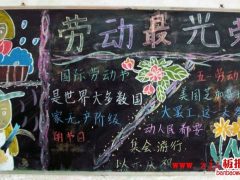 劳动最光荣
国际劳动节
是世界大多数国
家无产阶级
的节日
五一劳动
美国芝加哥
大罢工，这
动人民都要
集会、游行，
以示庆祝